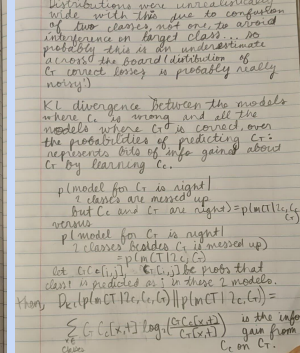 Distributions were unrealistically
wide with this due to confusion
of two classes not one, to avoid
interference on target class... so
probably this is an underestimate
across the board (distribution of
G correct losses is probably really
noisy.)
KL divergence between the models
where Cc is wrong and all the
models where CT is correct, over
the probabilities of predicting CT:
represents bits of info gained about
CT by learning Cc.
p(model for CT is right |
2 classes are messed up
but Cc and CT are right) = p(mCT | 2c, Cc, CT)
versus
p(model for CT is right |
2 classes besides CT is messed up)
= p(mCT | 2c, CT)
let CTCc[i,j], CT[i,j] be probs that
class i predicted as j in these 2 models.
then, DKL(p(mCT | 2c, Cc, CT) || p(mCT | 2c, CT)) =
∑ CTCc[x,t] log (CTCc[x,t] / CT[x,t]) is the info
gain from
classes Cc on CT.